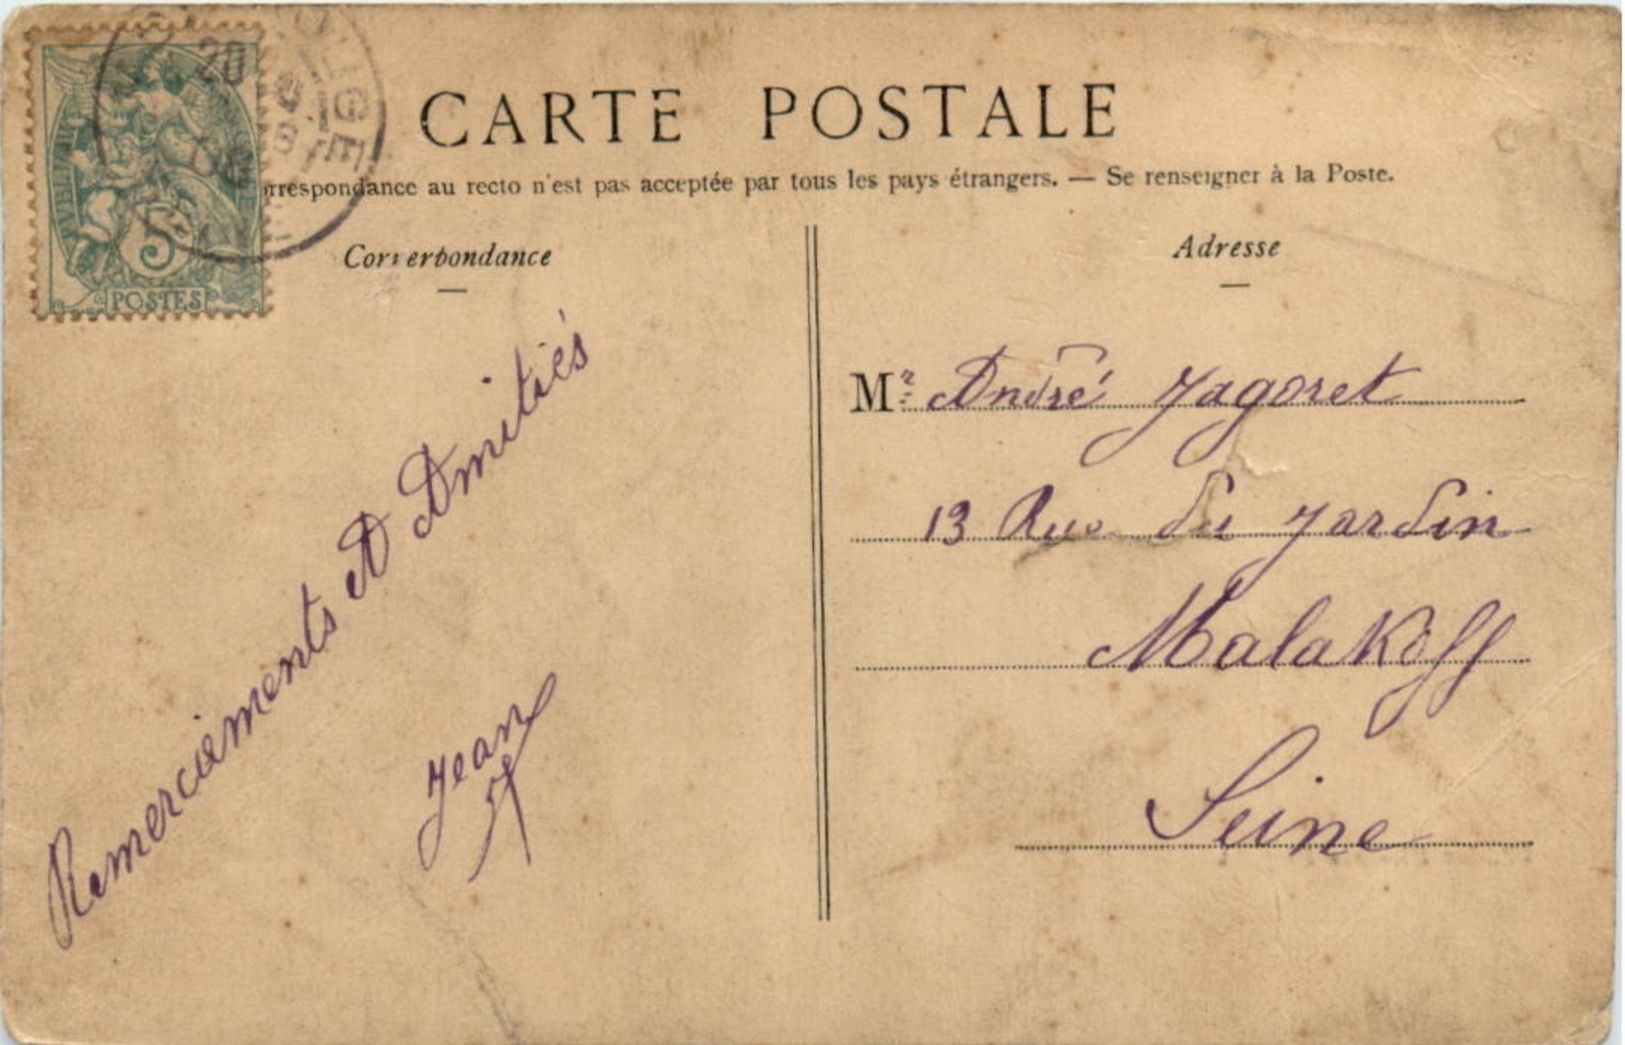 CARTE POSTALE
orrespondance au recto n'est pas acceptée par tous les pays étrangers. — Se renseigner à la Poste.
Correspondance
Adresse
5
POSTES
20
Remerciements et Amitiés
Jean
Mr André Jagoret
13 Rue du Jardin
Malakoff
Seine